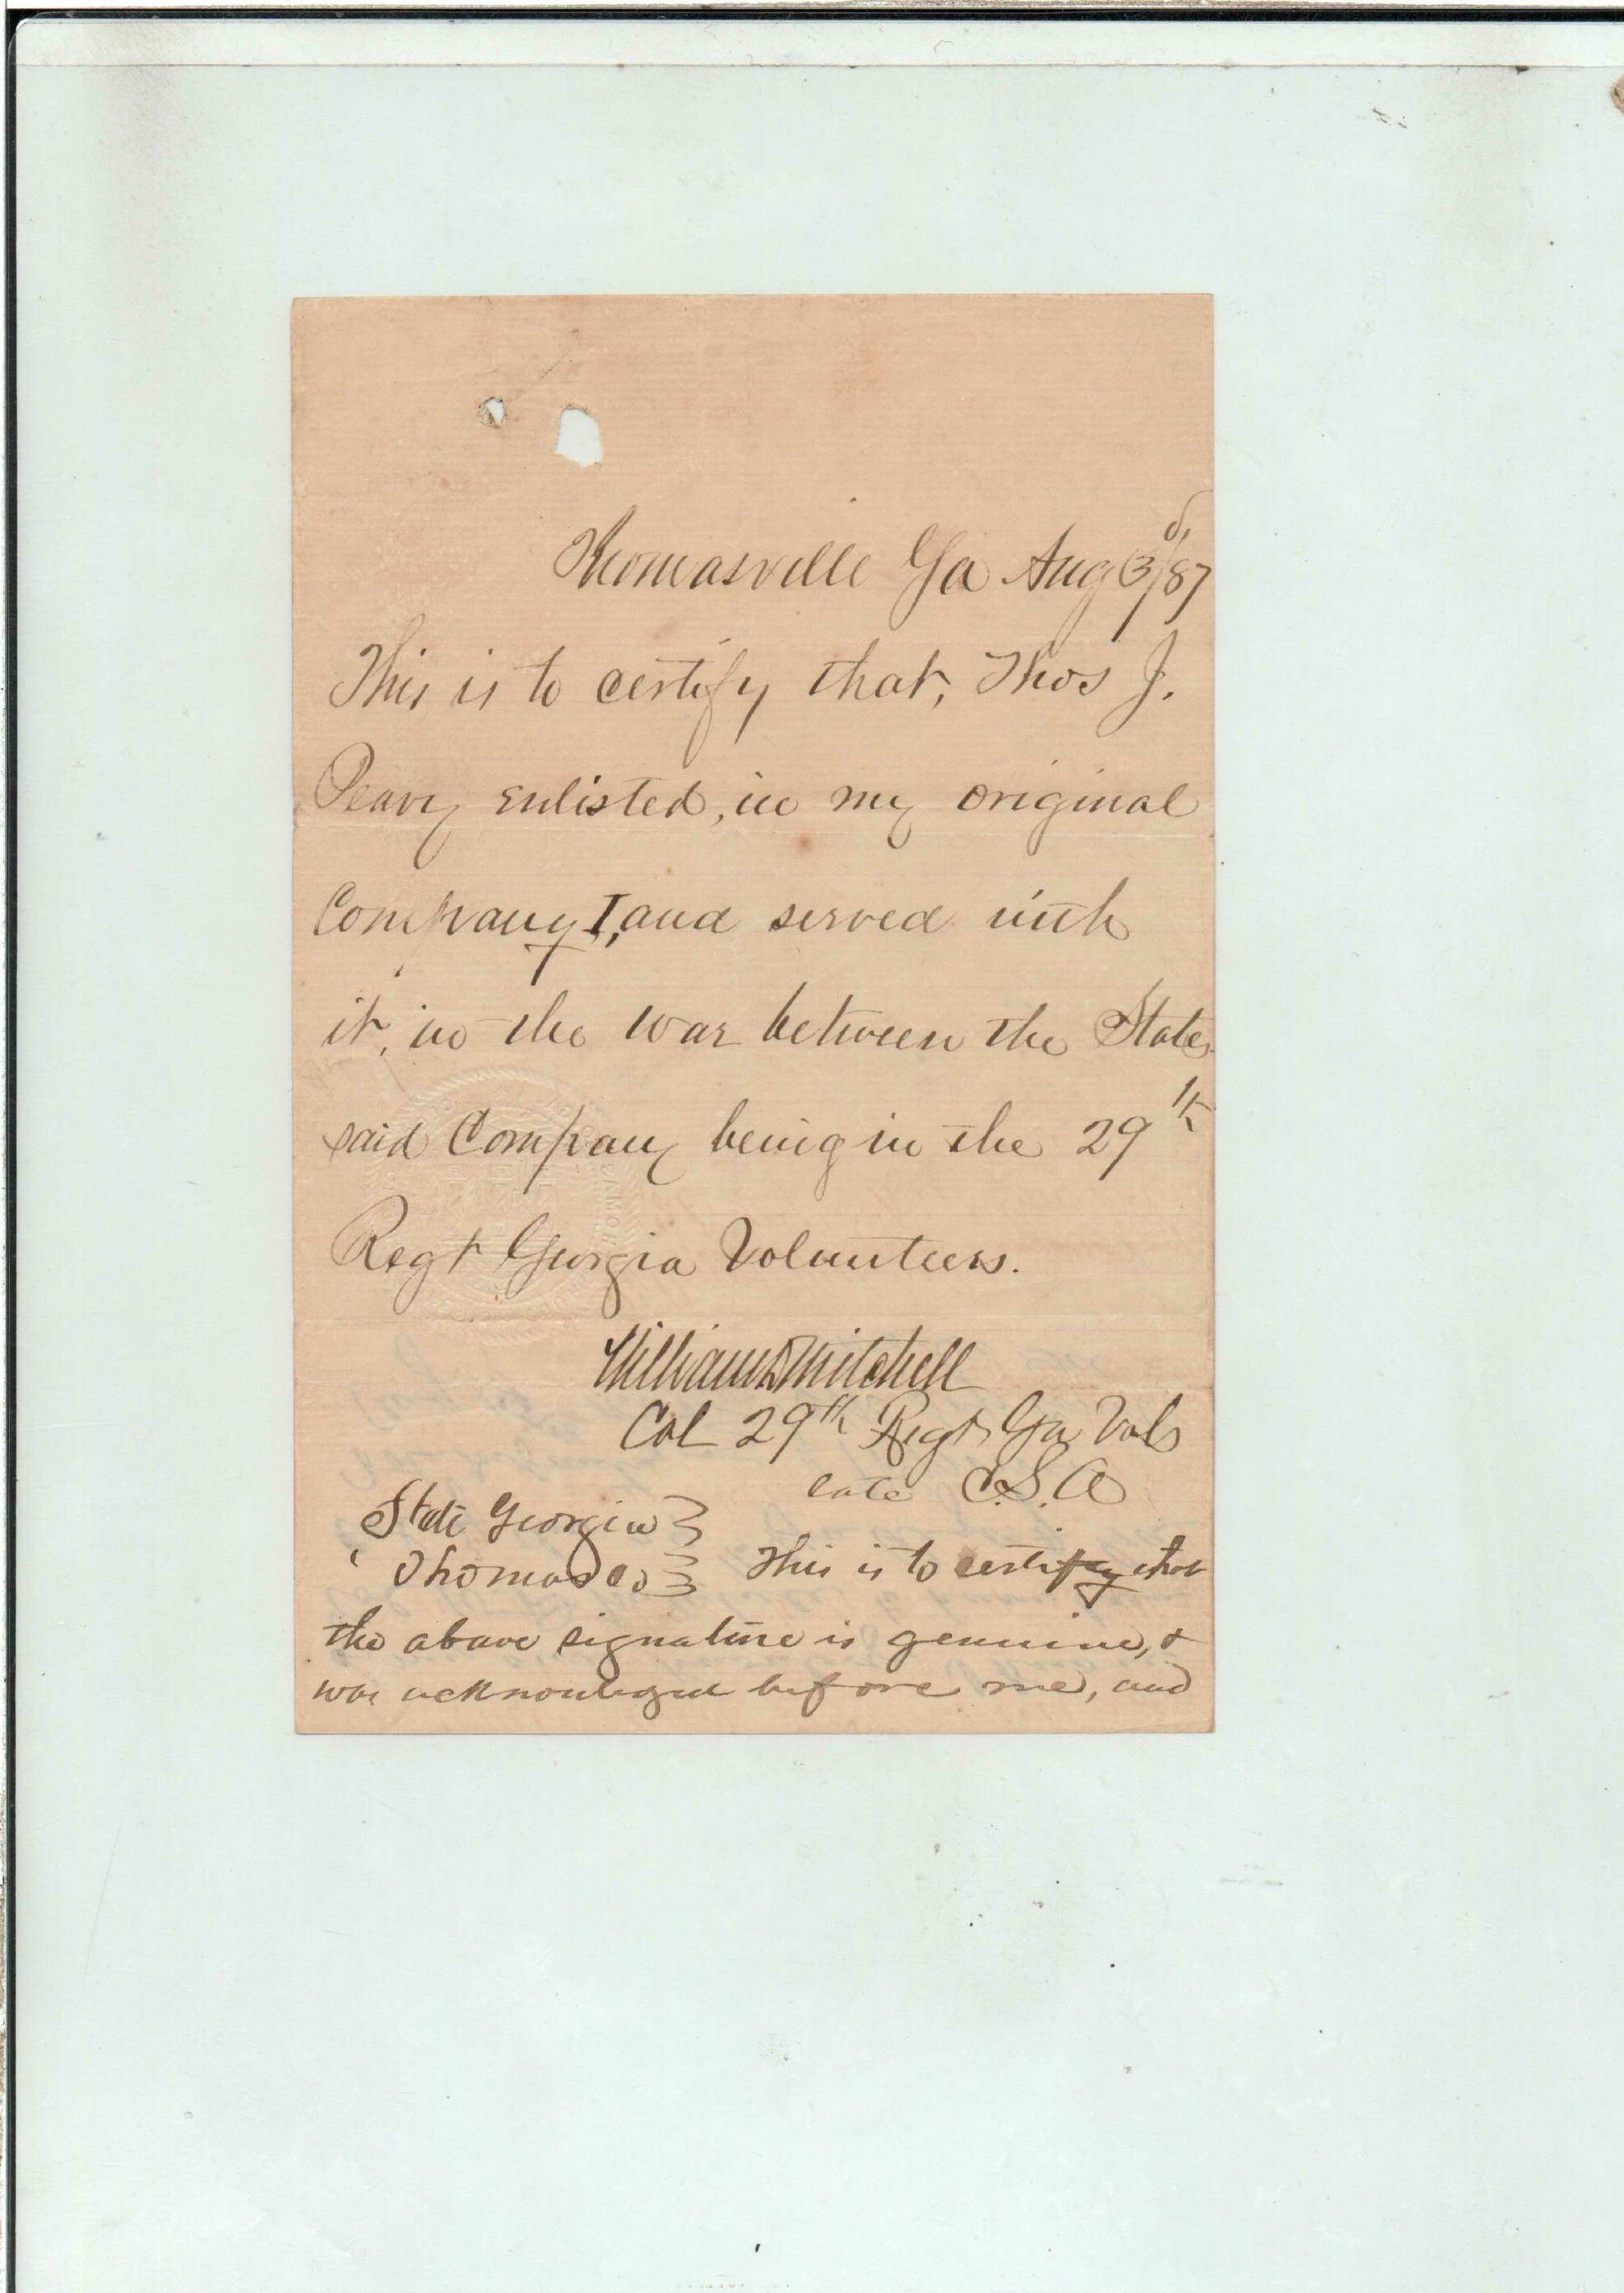 Thomasville Ga Aug 3/87
This is to certify that, Thos J.
Peavy enlisted, in my original
Company I, and served with
it, in the war between the States
said Company being in the 29th
Regt Georgia Volunteers.
William D Mitchell
Col 29th Regt Ga Vols
late C.S.A
State Georgia
Thomas Co
This is to certify that
the above signature is genuine, &
was acknowleged before me, and